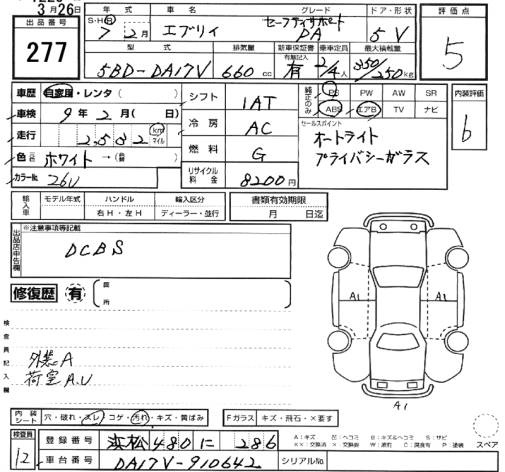 3月26日
出品番号
277
年式 車名 グレード ドア・形状
S・H・R 7年 2月 エブリィ セーフティサポート PA 5V
型式 排気量 新車保証書 乗車定員 最大積載量
有無記入
5BD-DA17V 660cc 有 2/4人 350/250kg
評価点
5
車歴 自家用・レンタ( )
車検 9年 2月(日)
走行 2,532 km マイル
色 ホワイト→( )
カラーNo. 26U
シフト 1AT
冷房 AC
燃料 G
リサイクル料金 8200円
純正のみ
PS PW AW SR
ABS エアB TV ナビ
セールスポイント
オートライト
プライバシーガラス
内装評価
b
輸入車
モデル年式 ハンドル 輸入区分
右H・左H ディーラー・並行
書類有効期限
月 日迄
出品店申告欄
※注意事項等記載
DCBS
修復歴 有
箇所
検査員記入欄
外装A
荷室A.U
A1 A1
A1
内装シート 穴・破れ・スレ・コゲ・汚れ・キズ・黄ばみ
Fガラス キズ・飛石・×要す
検査員
12
登録番号 浜松480に286
車台番号 DA17V-910642
シリアルNo.
スペア